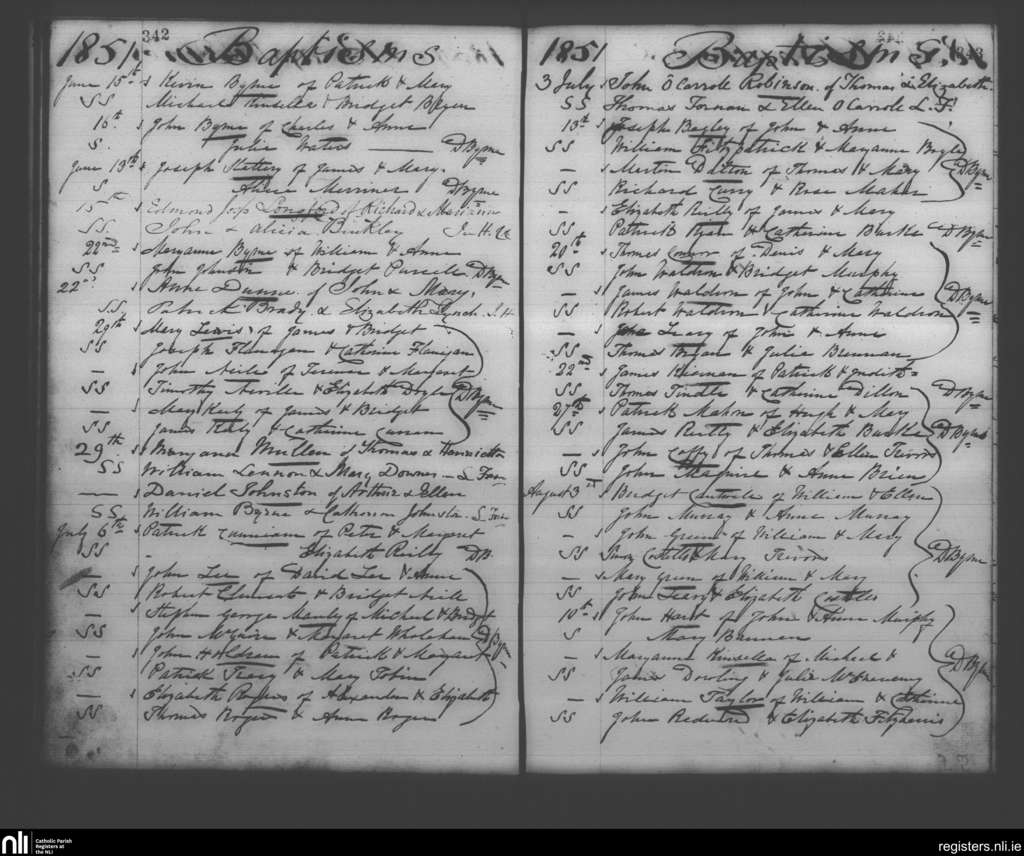 342
1851 Baptisms
June 15th s Kevin Byrne of Patrick & Mary
SS Michael Kinsella & Bridget Byrne
16th s John Byrne of Charles & Anne
S. Julia Waters — DByrne
June 13th s Joseph Slattery of James & Mary.
S Alice Merriner DByrne
15th s Edmond Jos Longford of Richard & Marianne
SS. John & Alicia Binkley
22nd s Maryanne Byrne of William & Anne
SS John Johnson & Bridget Purcell DByrne
22nd s Anne Dunne of John & Mary,
SS Patrick Brady & Elizabeth Lynch
29th s Mary Lewis of James & Bridget
SS Joseph Flanagan & Catherine Flanigan
— s John Neile of Terence & Margaret
SS Timothy Neville & Elizabeth Doyle DByrne
— s Mary Kerly of James & Bridget
SS James Kelly & Catherine Curran
29th s Maryanne Mullen of Thomas & Henrietta
SS William Lennon & Mary Downes
— s Daniel Johnston of Arthur & Ellen
SS William Byrne & Catherine Johnston
July 6th s Patrick Cunniam of Peter & Margaret
SS - Elizabeth Reilly DB.
— s John Lee of David Lee & Anne
SS Robert Clements & Bridget Neile
— s Stephen George Manly of Michael & Bridget
SS John McGuire & Margaret Wholehan DByrne
— s John Holdsean of Patrick & Margaret
SS Patrick Tracy & Mary Tobin
— s Elizabeth Rogers of Alexander & Elizabeth
SS Thomas Rogers & Anne Rogers
343
1851 Baptisms
3 July s John O'Carroll Robinson of Thomas & Elizabeth
SS Thomas Tornan & Ellen O'Carroll
13th s Joseph Bagley of John & Anne
SS William Fitzpatrick & Maryanne Bagley
— s Martin Dalton of Thomas & Mary DByrne
SS Richard Curry & Rose Maher
— s Elizabeth Reilly of James & Mary
SS Patrick Ryan & Catherine Burke DByrne
20th s Thomas Connor of Denis & Mary
SS John Waldron & Bridget Murphy
— s James Waldron of John & Catherine DByrne
SS Robert Waldron & Catherine Waldron
— s John Leary of John & Anne
SS Thomas Bryan & Julia Brennan
22nd s James Kiernan of Patrick & Judith
SS Thomas Tindle & Catherine Dillon DByrne
27th s Patrick Mahon of Hugh & Mary
SS James Reilly & Elizabeth Burke DByrne
— s John Coffy of Thomas & Ellen
SS John Maguire & Anne Brien
August 3rd s Bridget of William & Ellen
SS John Murray & Anne Murray
— s John Green of William & Mary
SS Costello & Mary DByrne
— s Mary Green of William & Mary
SS John Leary & Elizabeth
10th s John Hart of John & Anne Murphy
S Mary Brennan
— s Maryanne Kinsella of Michael &
SS James Dowling & Julia McSweeney DByrne
— s William Taylor of William & Catherine
SS John Redmond & Elizabeth Fitzdenis
nli Catholic Parish
Registers at
the NLI
registers.nli.ie